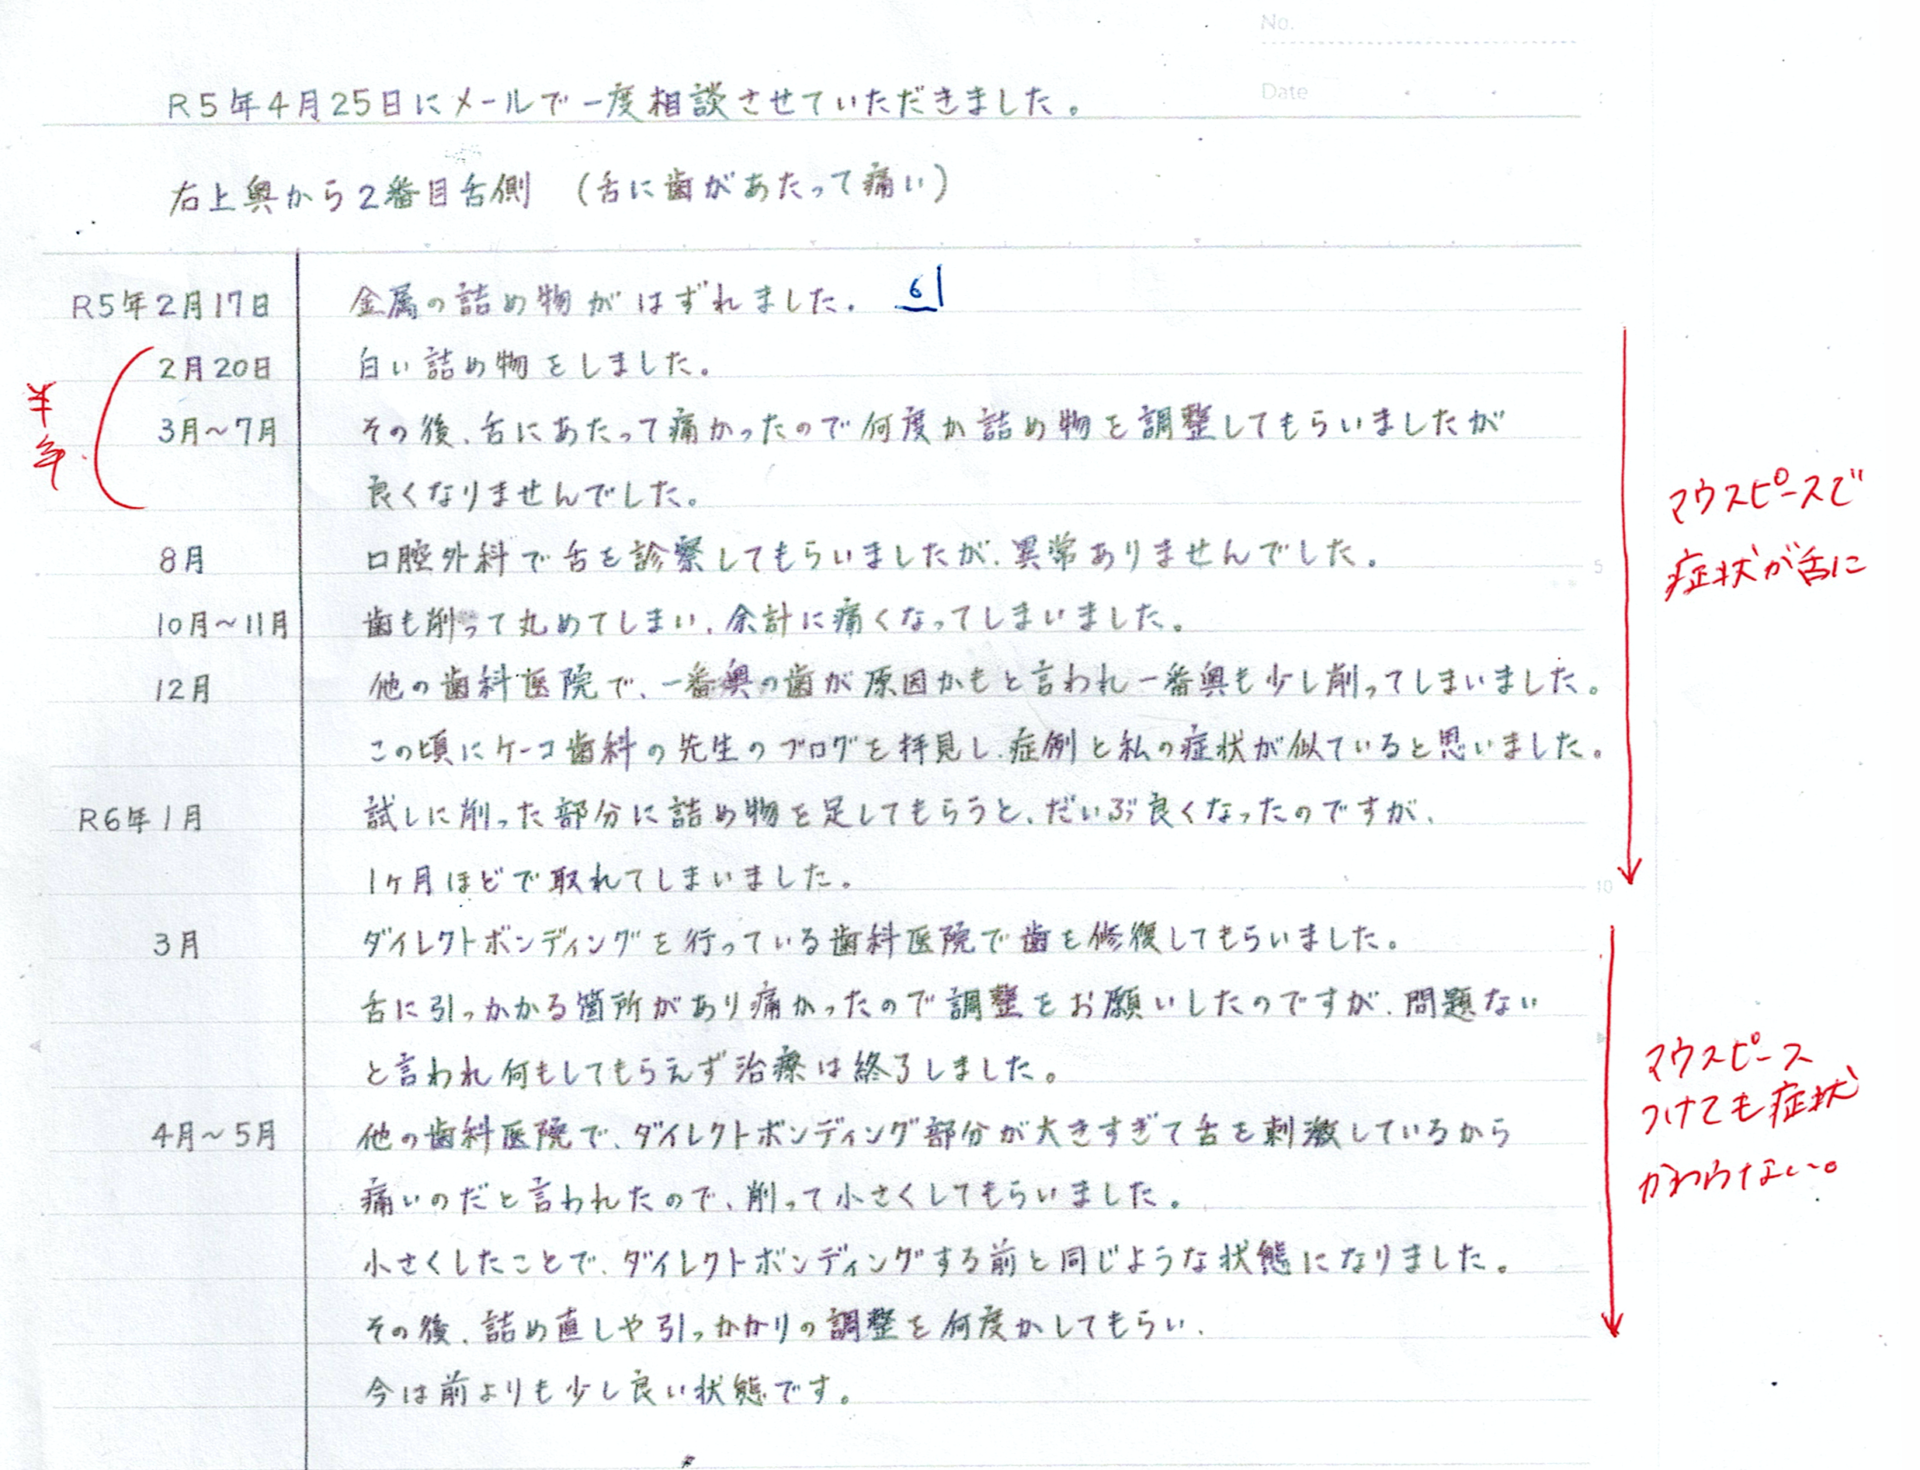 No.
Date
R5年4月25日にメールで一度相談させていただきました。
右上奥から2番目舌側 (舌に歯があたって痛い)
R5年2月17日 金属の詰め物がはずれました。 6
2月20日 白い詰め物をしました。
半年
3月～7月 その後、舌にあたって痛かったので何度か詰め物を調整してもらいましたが
良くなりませんでした。
8月 口腔外科で舌を診察してもらいましたが、異常ありませんでした。
5
10月～11月 歯も削って丸めてしまい、余計に痛くなってしまいました。
12月 他の歯科医院で、一番奥の歯が原因かもと言われ一番奥も少し削ってしまいました。
この頃にケーコ歯科の先生のブログを拝見し、症例と私の症状が似ていると思いました。
R6年1月 試しに削った部分に詰め物を足してもらうと、だいぶ良くなったのですが、
1ヶ月ほどで取れてしまいました。
10
マウスピースで
症状が舌に
3月 ダイレクトボンディングを行っている歯科医院で歯を修復してもらいました。
舌に引っかかる箇所があり痛かったので調整をお願いしたのですが、問題ない
と言われ何もしてもらえず治療は終了しました。
4月～5月 他の歯科医院で、ダイレクトボンディング部分が大きすぎて舌を刺激しているから
痛いのだと言われたので、削って小さくしてもらいました。
小さくしたことで、ダイレクトボンディングする前と同じような状態になりました。
その後、詰め直しや引っかかりの調整を何度かしてもらい、
今は前よりも少し良い状態です。
マウスピース
つけても症状
かわらない。